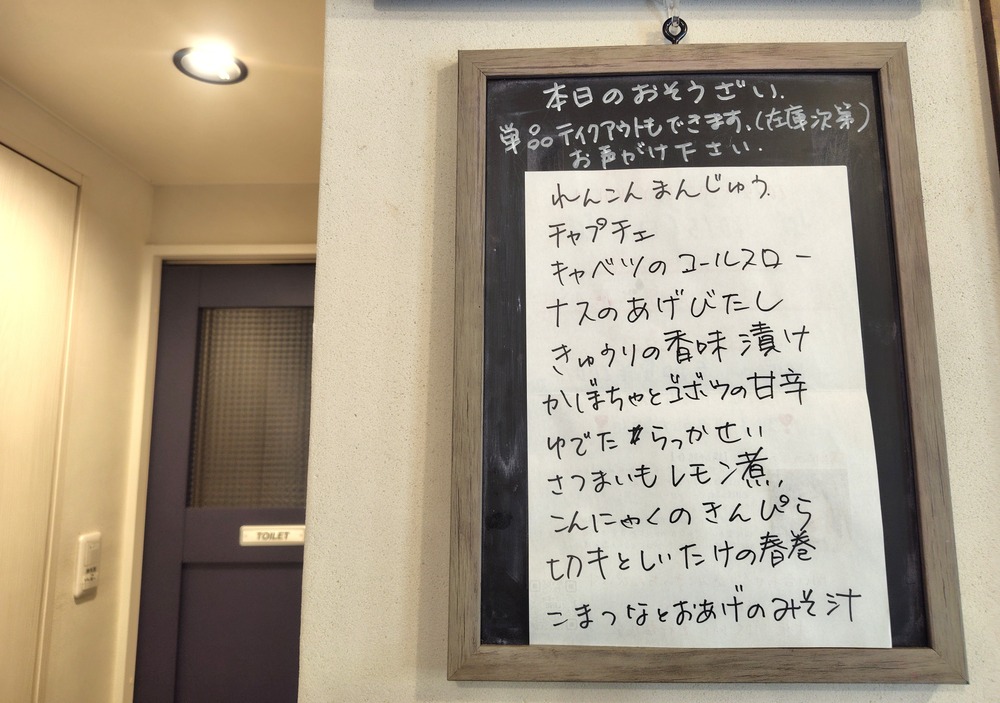 本日のおそうざい.
単品ティクアウトもできます。(在庫次第)
お声がけ下さい.
れんこんまんじゅう
チャプチェ
キャベツのコールスロー
ナスのあげびたし
きゅうりの香味漬け
かぼちゃとゴボウの甘辛
ゆでたらっかせい
さつまいもレモン煮
こんにゃくのきんぴら
切干としいたけの春巻
こまつなとおあげのみそ汁
TOILET